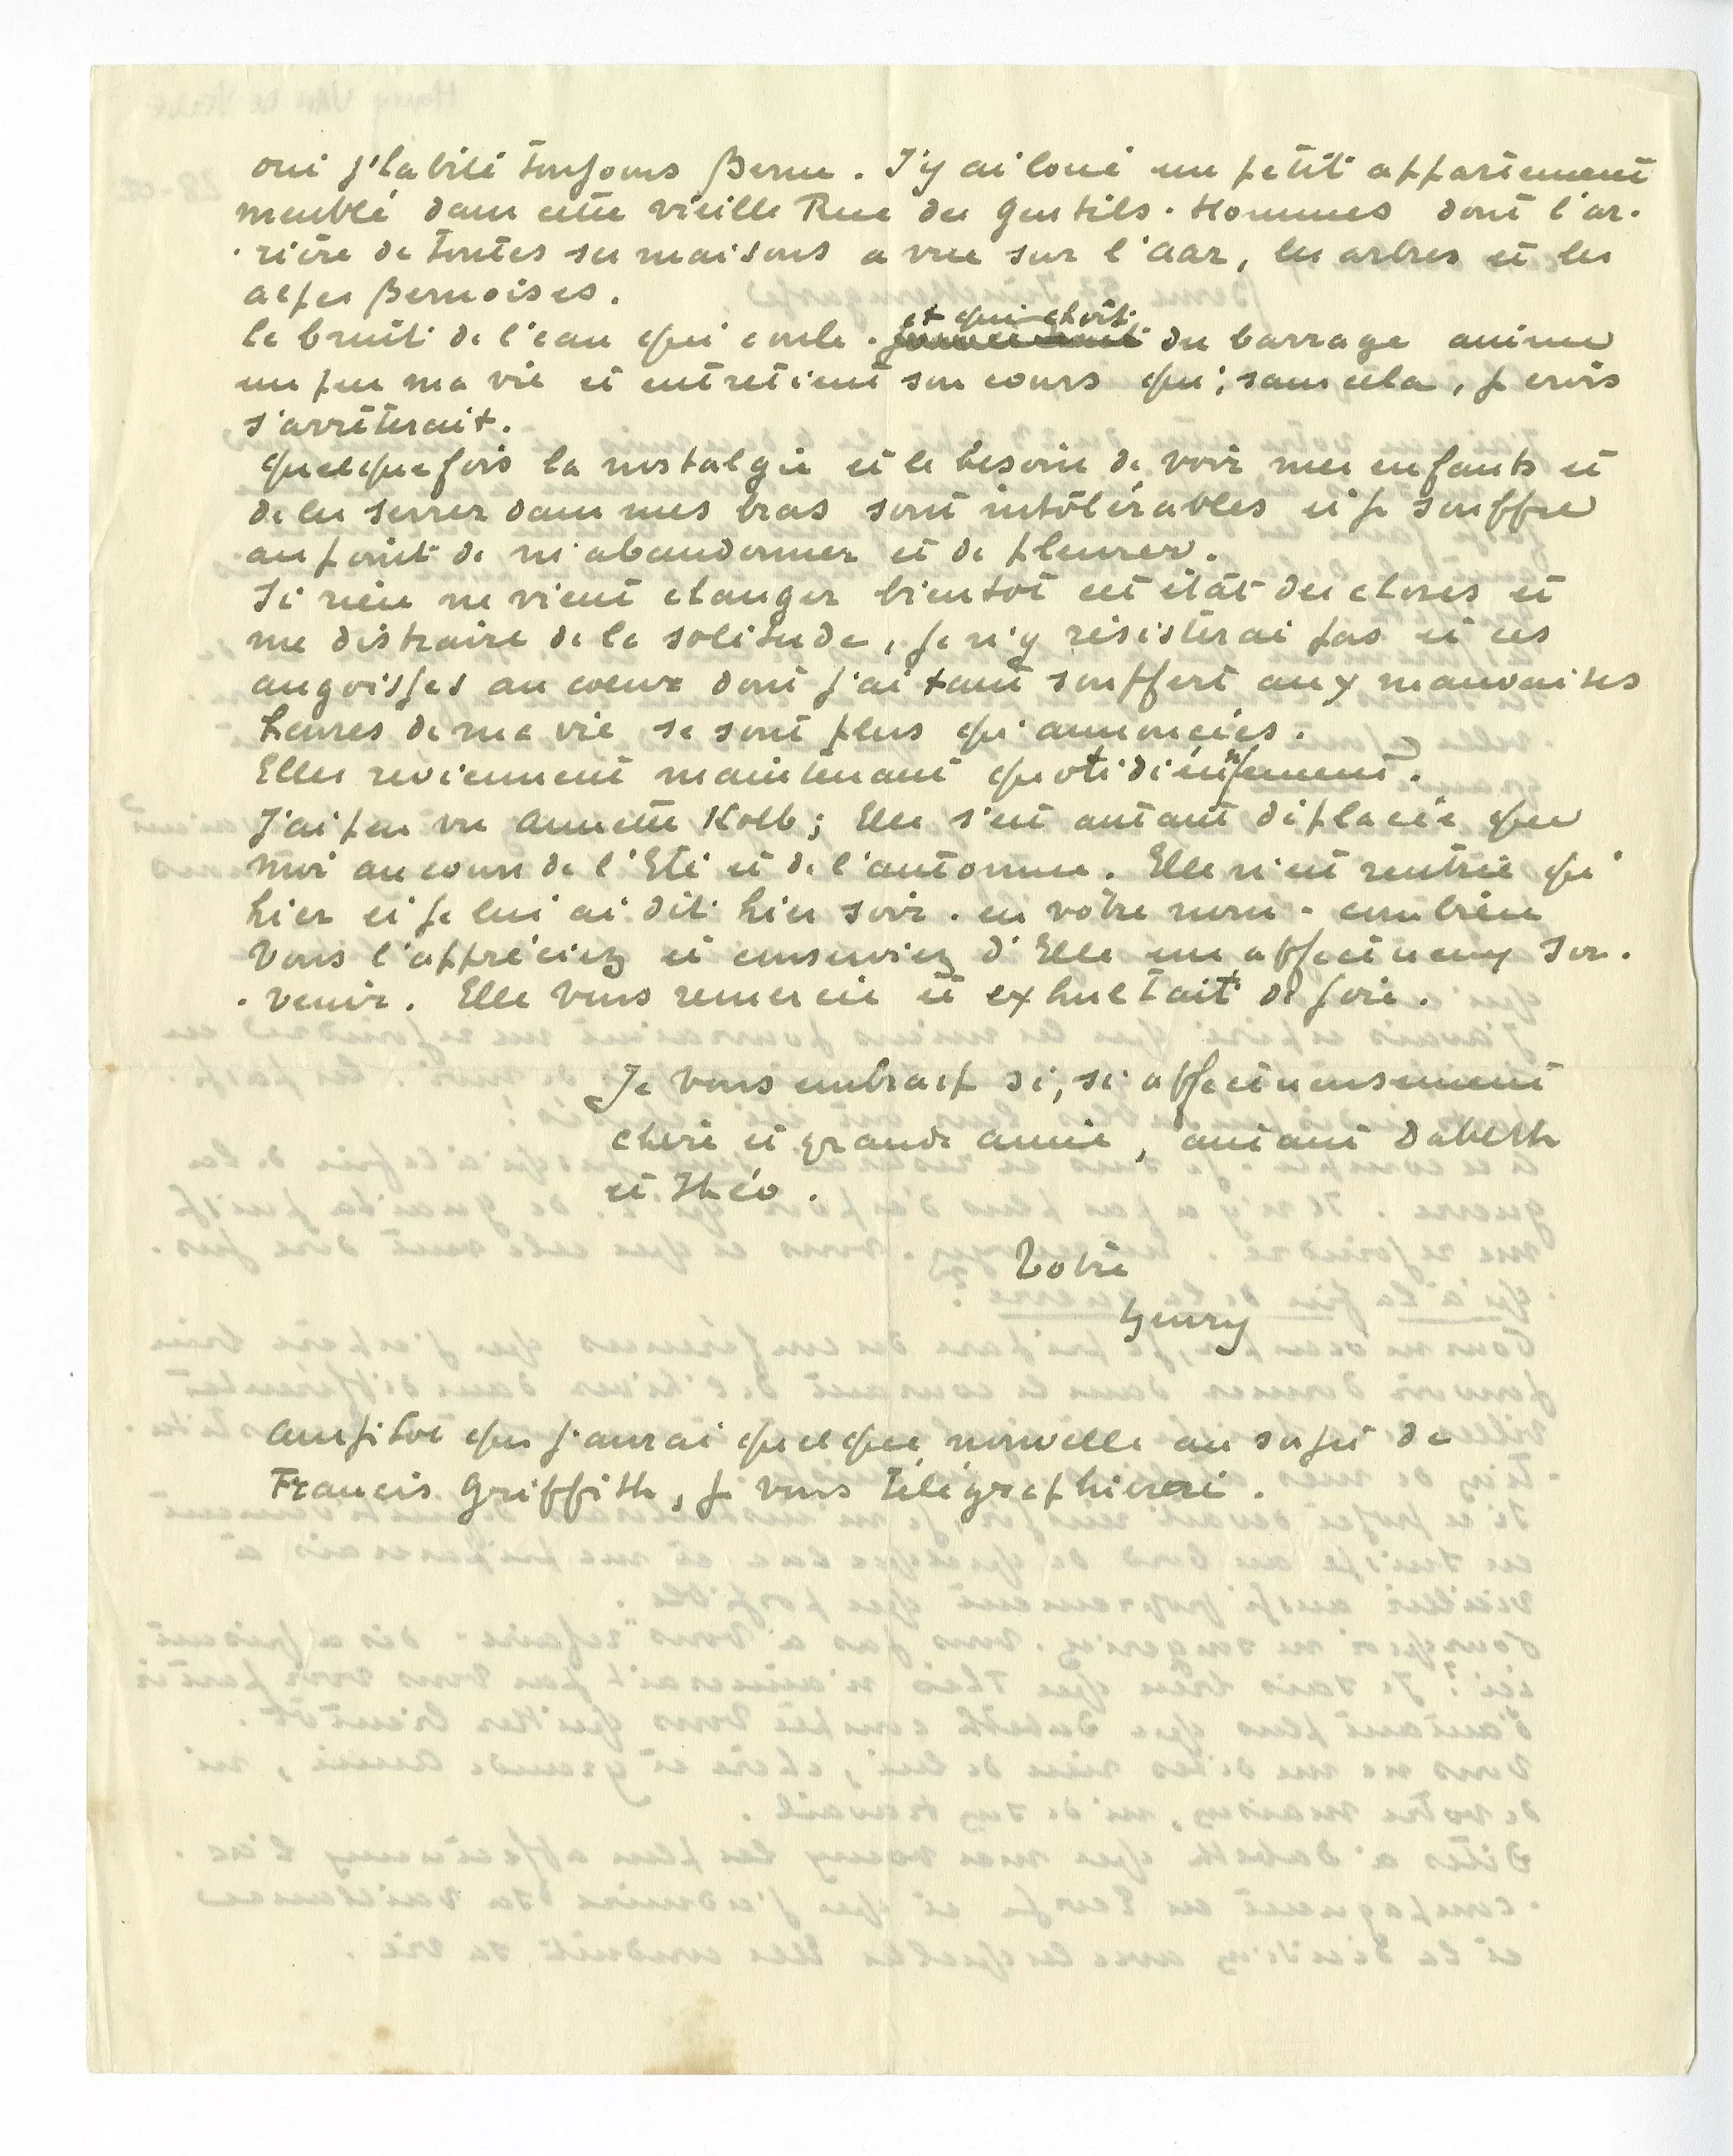 oui j'habite toujours Berne. J'y ai loué un petit appartement
meublé dans cette vieille Rue des Gentils-Hommes dont l'ar-
-rière de toutes ses maisons a vue sur l'aar, les arbres et les
alpes Bernoises.
le bruit de l'eau qui coule - et qui choit du barrage anime
un peu ma vie et entretient son cours qui, sans cela, je crois
s'arrêterait.
quelquefois la nostalgie et le besoin de voir mes enfants et
de les serrer dans mes bras sont intolérables et je souffre
au point de m'abandonner et de pleurer.
Si rien ne vient changer bientôt cet état des choses et
me distraire de la solitude, je n'y résisterai pas et ces
angoisses au coeur dont j'ai tant souffert aux mauvaises
heures de ma vie se sont plus qu'annoncées.
Elles reviennent maintenant quotidiennement.
J'ai peu vu Annette Kolb; Elle s'est autant déplacée que
moi au cours de l'Eté et de l'automne. Elle n'est rentrée qu'
hier et je lui ai dit hier soir - en votre nom - combien
vous l'appréciez et conserviez d'Elle un affectueux sou-
-venir. Elle vous remercie et exhultait de joie.
Je vous embrasse si, si affectueusement
chère et grande amie, autant Dabeth
et Théo.
Votre
henry
Aussitot que j'aurai quelque nouvelle au sujet de
Francis Griffith, je vous télégraphierai.